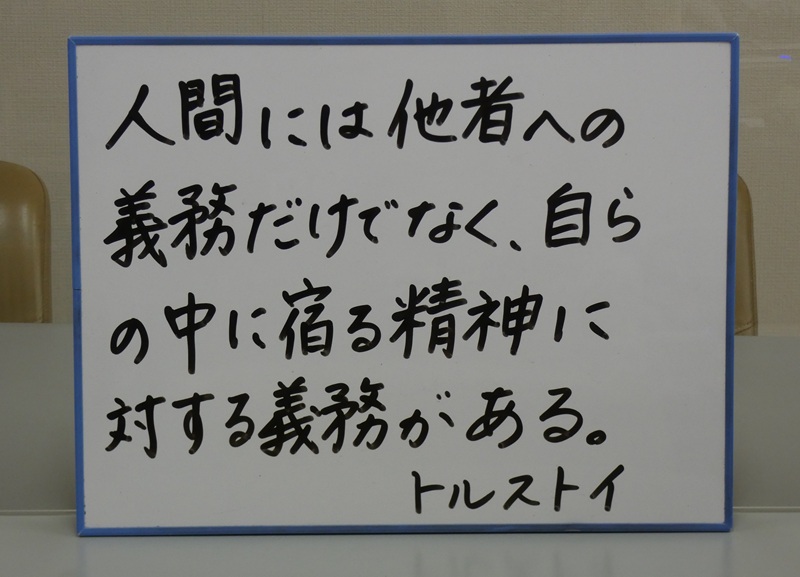 人間には他者への
義務だけでなく、自ら
の中に宿る精神に
対する義務がある。
トルストイ